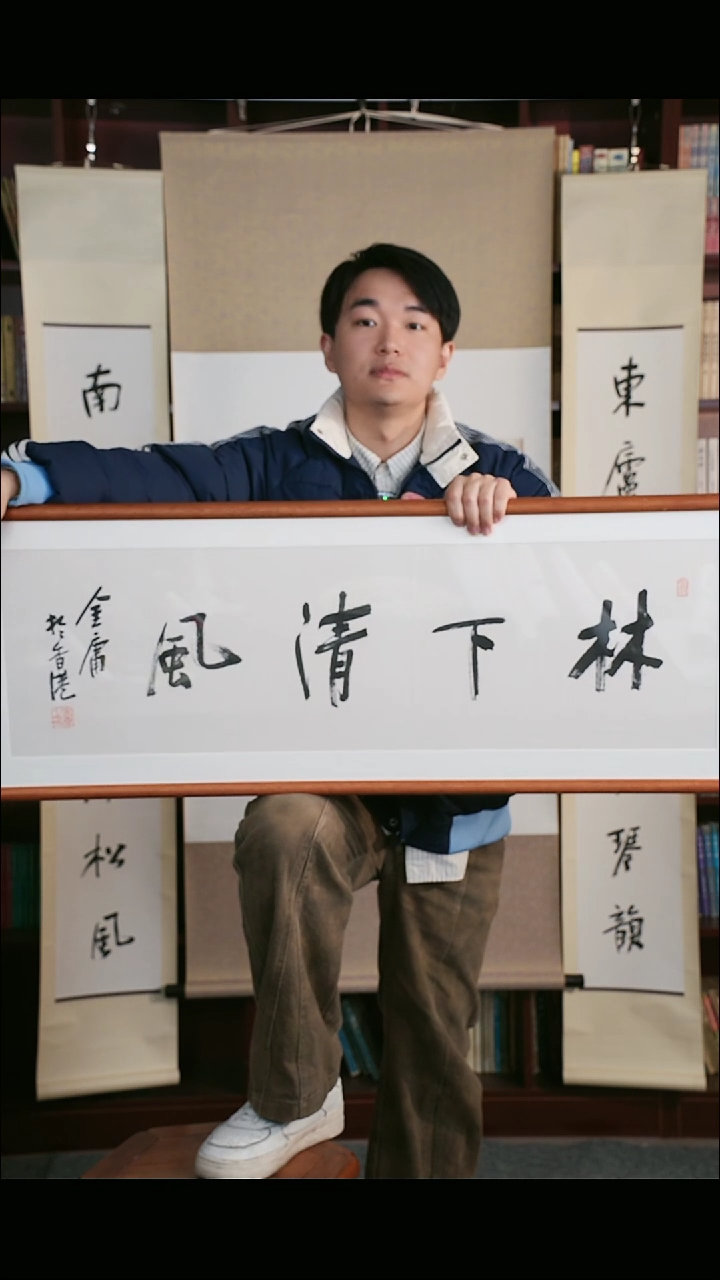 林下清風
金庸
於香港
東廬
琴韻
南
松風